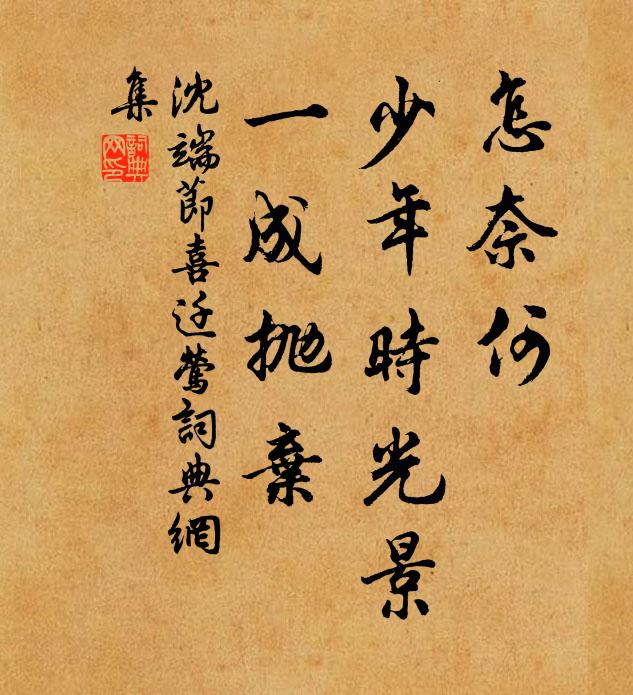 怎奈何
少年時光景
一成抛棄
沈端節喜迁鶯詞典網
集
詞典网印